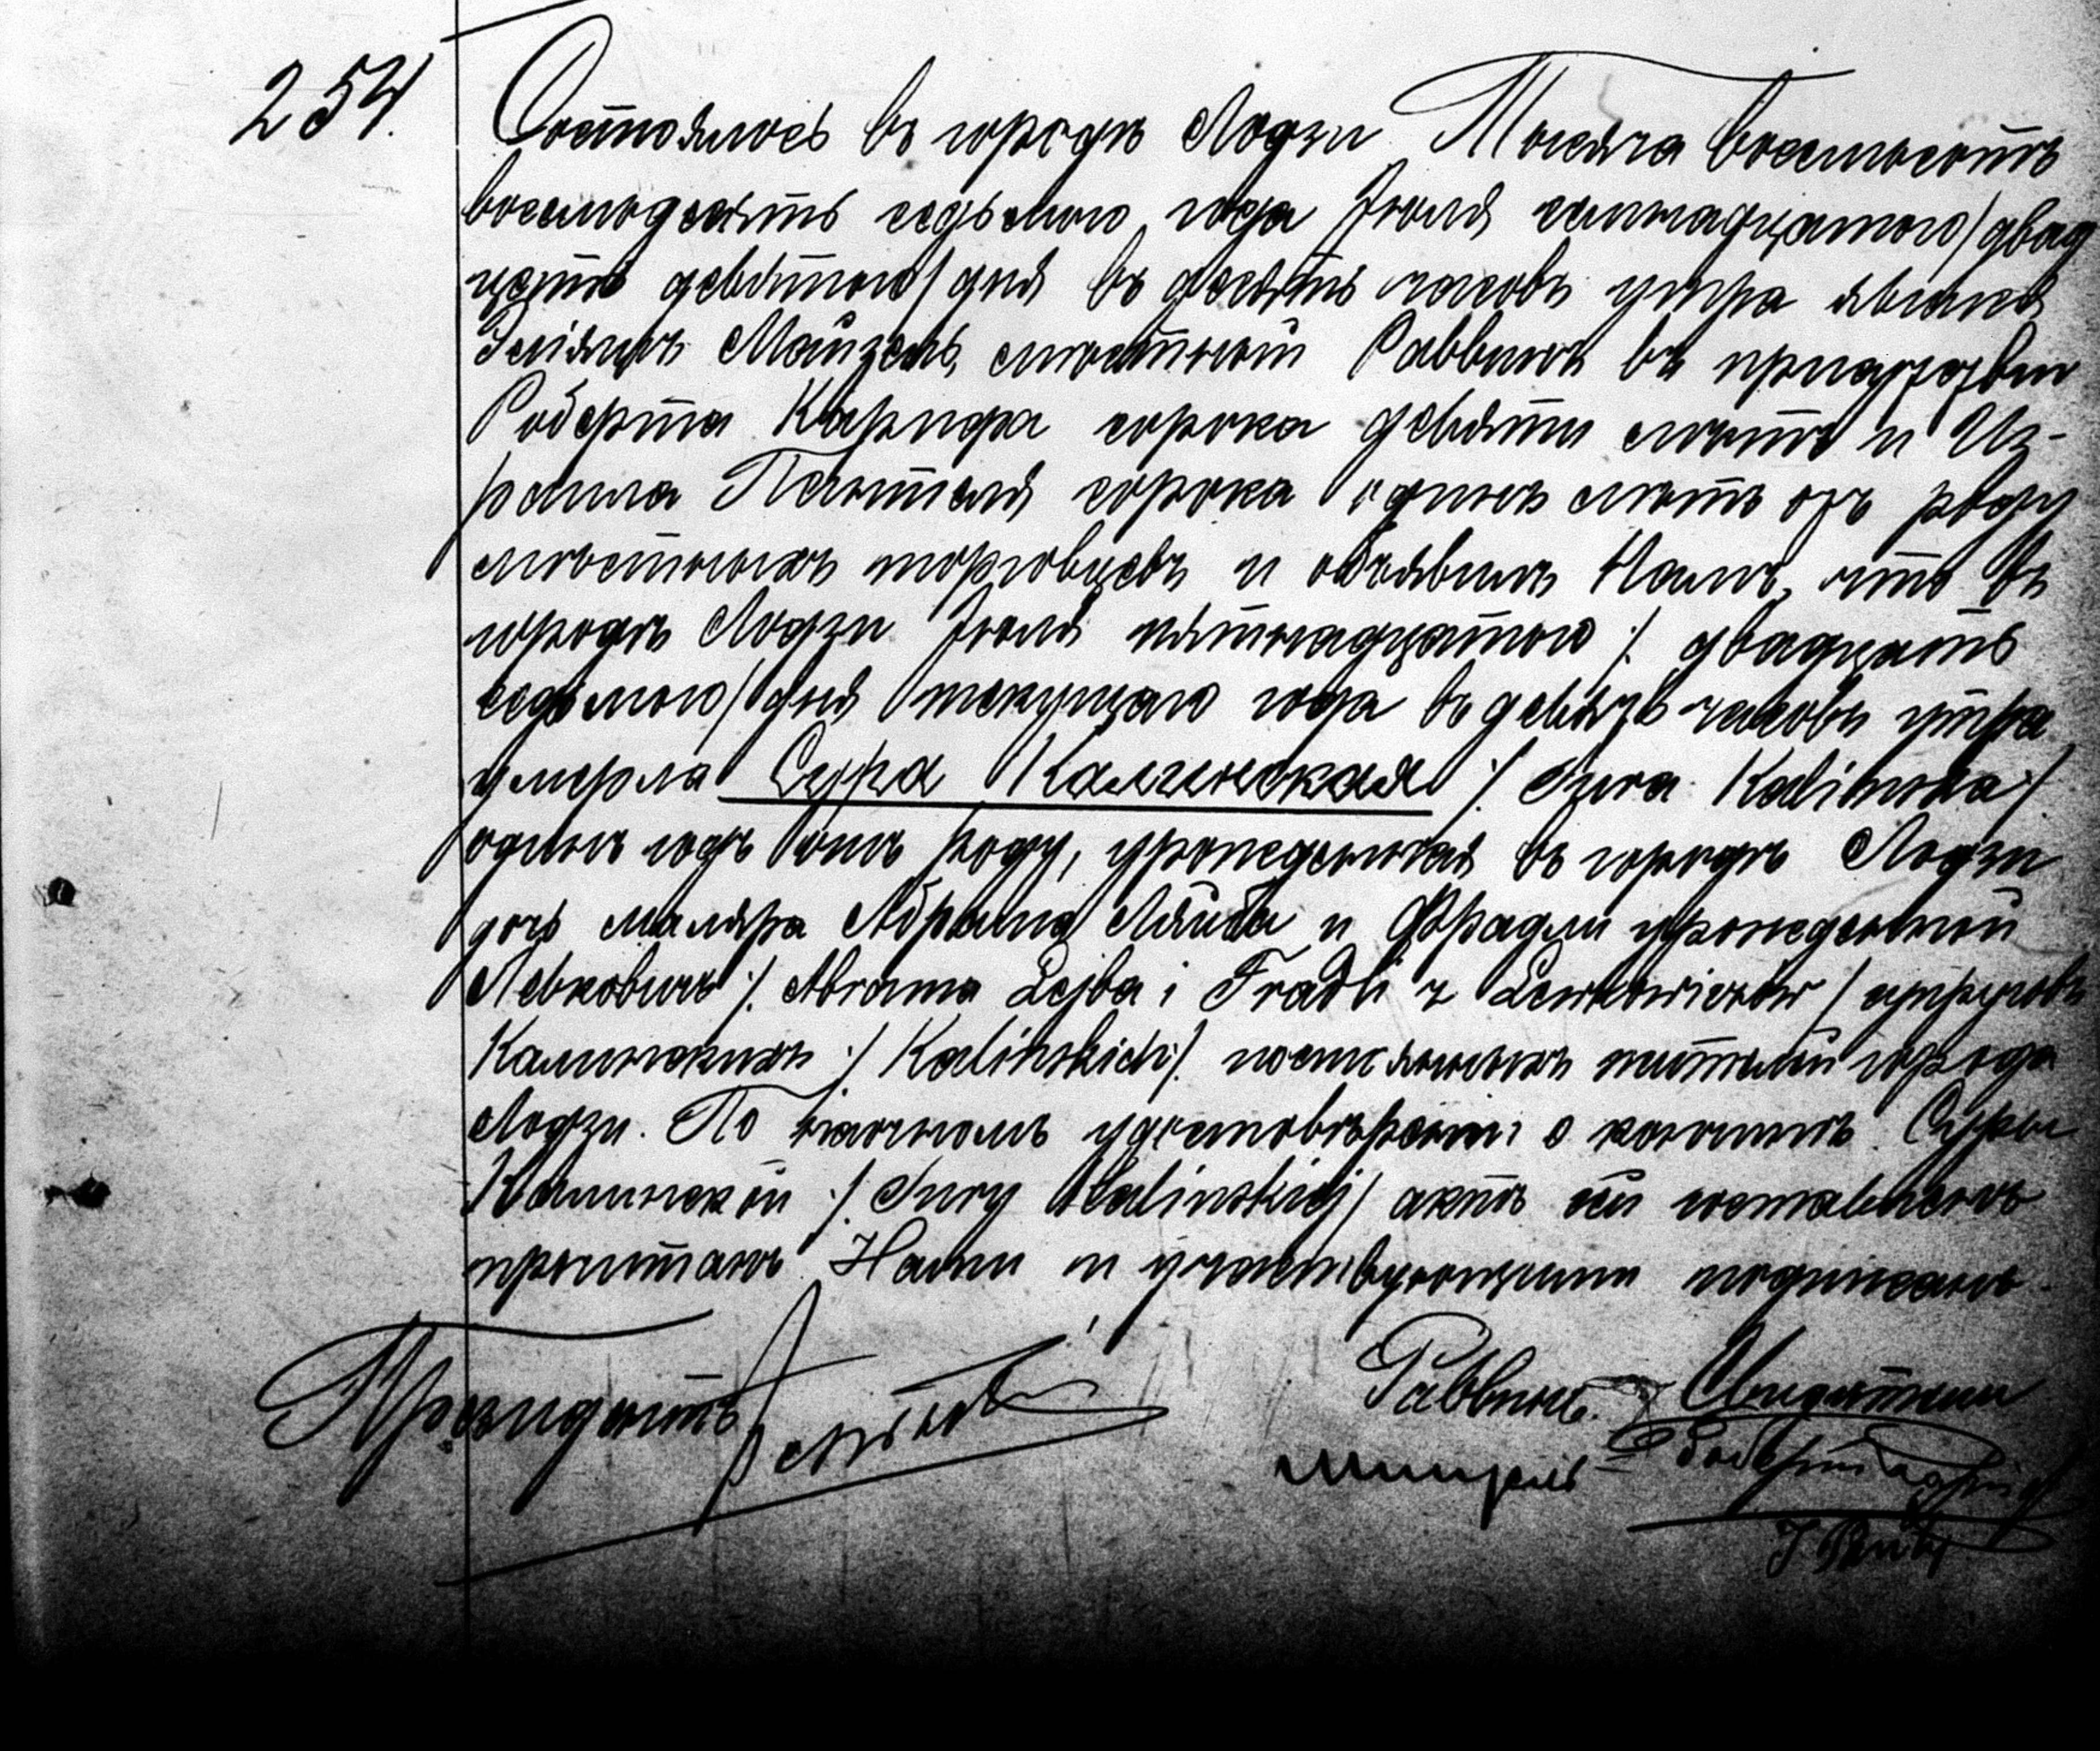 254.
Состоялось въ городѣ Лодзи Тысяча восемьсотъ
восемьдесятъ седьмого года Іюля семнадцатого / двад
цать девятого / дня въ десять часовъ утра явился
Іліяшъ Майзель, мѣстный Раввинъ въ присутствіи
Роберта сорока девяти лѣтъ и Из-
раиля сорока одинъ лѣтъ отъ роду
мѣстныхъ торговцевъ и объявилъ Намъ, что въ
городѣ Лодзи Іюля пятнадцатого /. двадцать
седьмого / дня текущаго года въ девять часовъ утра
умерла Сура Калинская /. Sura Kalinska ./
одинъ годъ отъ роду, урожденная въ городѣ Лодзи
дочь маляра Абрама Ляйба и Фрадли урожденной
Левковичъ /. Abrama Lejba i Fradli z Lewkowiczów / супруговъ
Калинскихъ ./ Kalinskich /. постоянныхъ жителей города
Лодзи. По наочномъ удостовѣреніи о кончинѣ Суры
Калинской /. Sury Kalinskiej / актъ сей составленъ
прочитанъ Нами и участвующими подписанъ.
Президентъ Раввинъ. Свидѣтели
Майзель